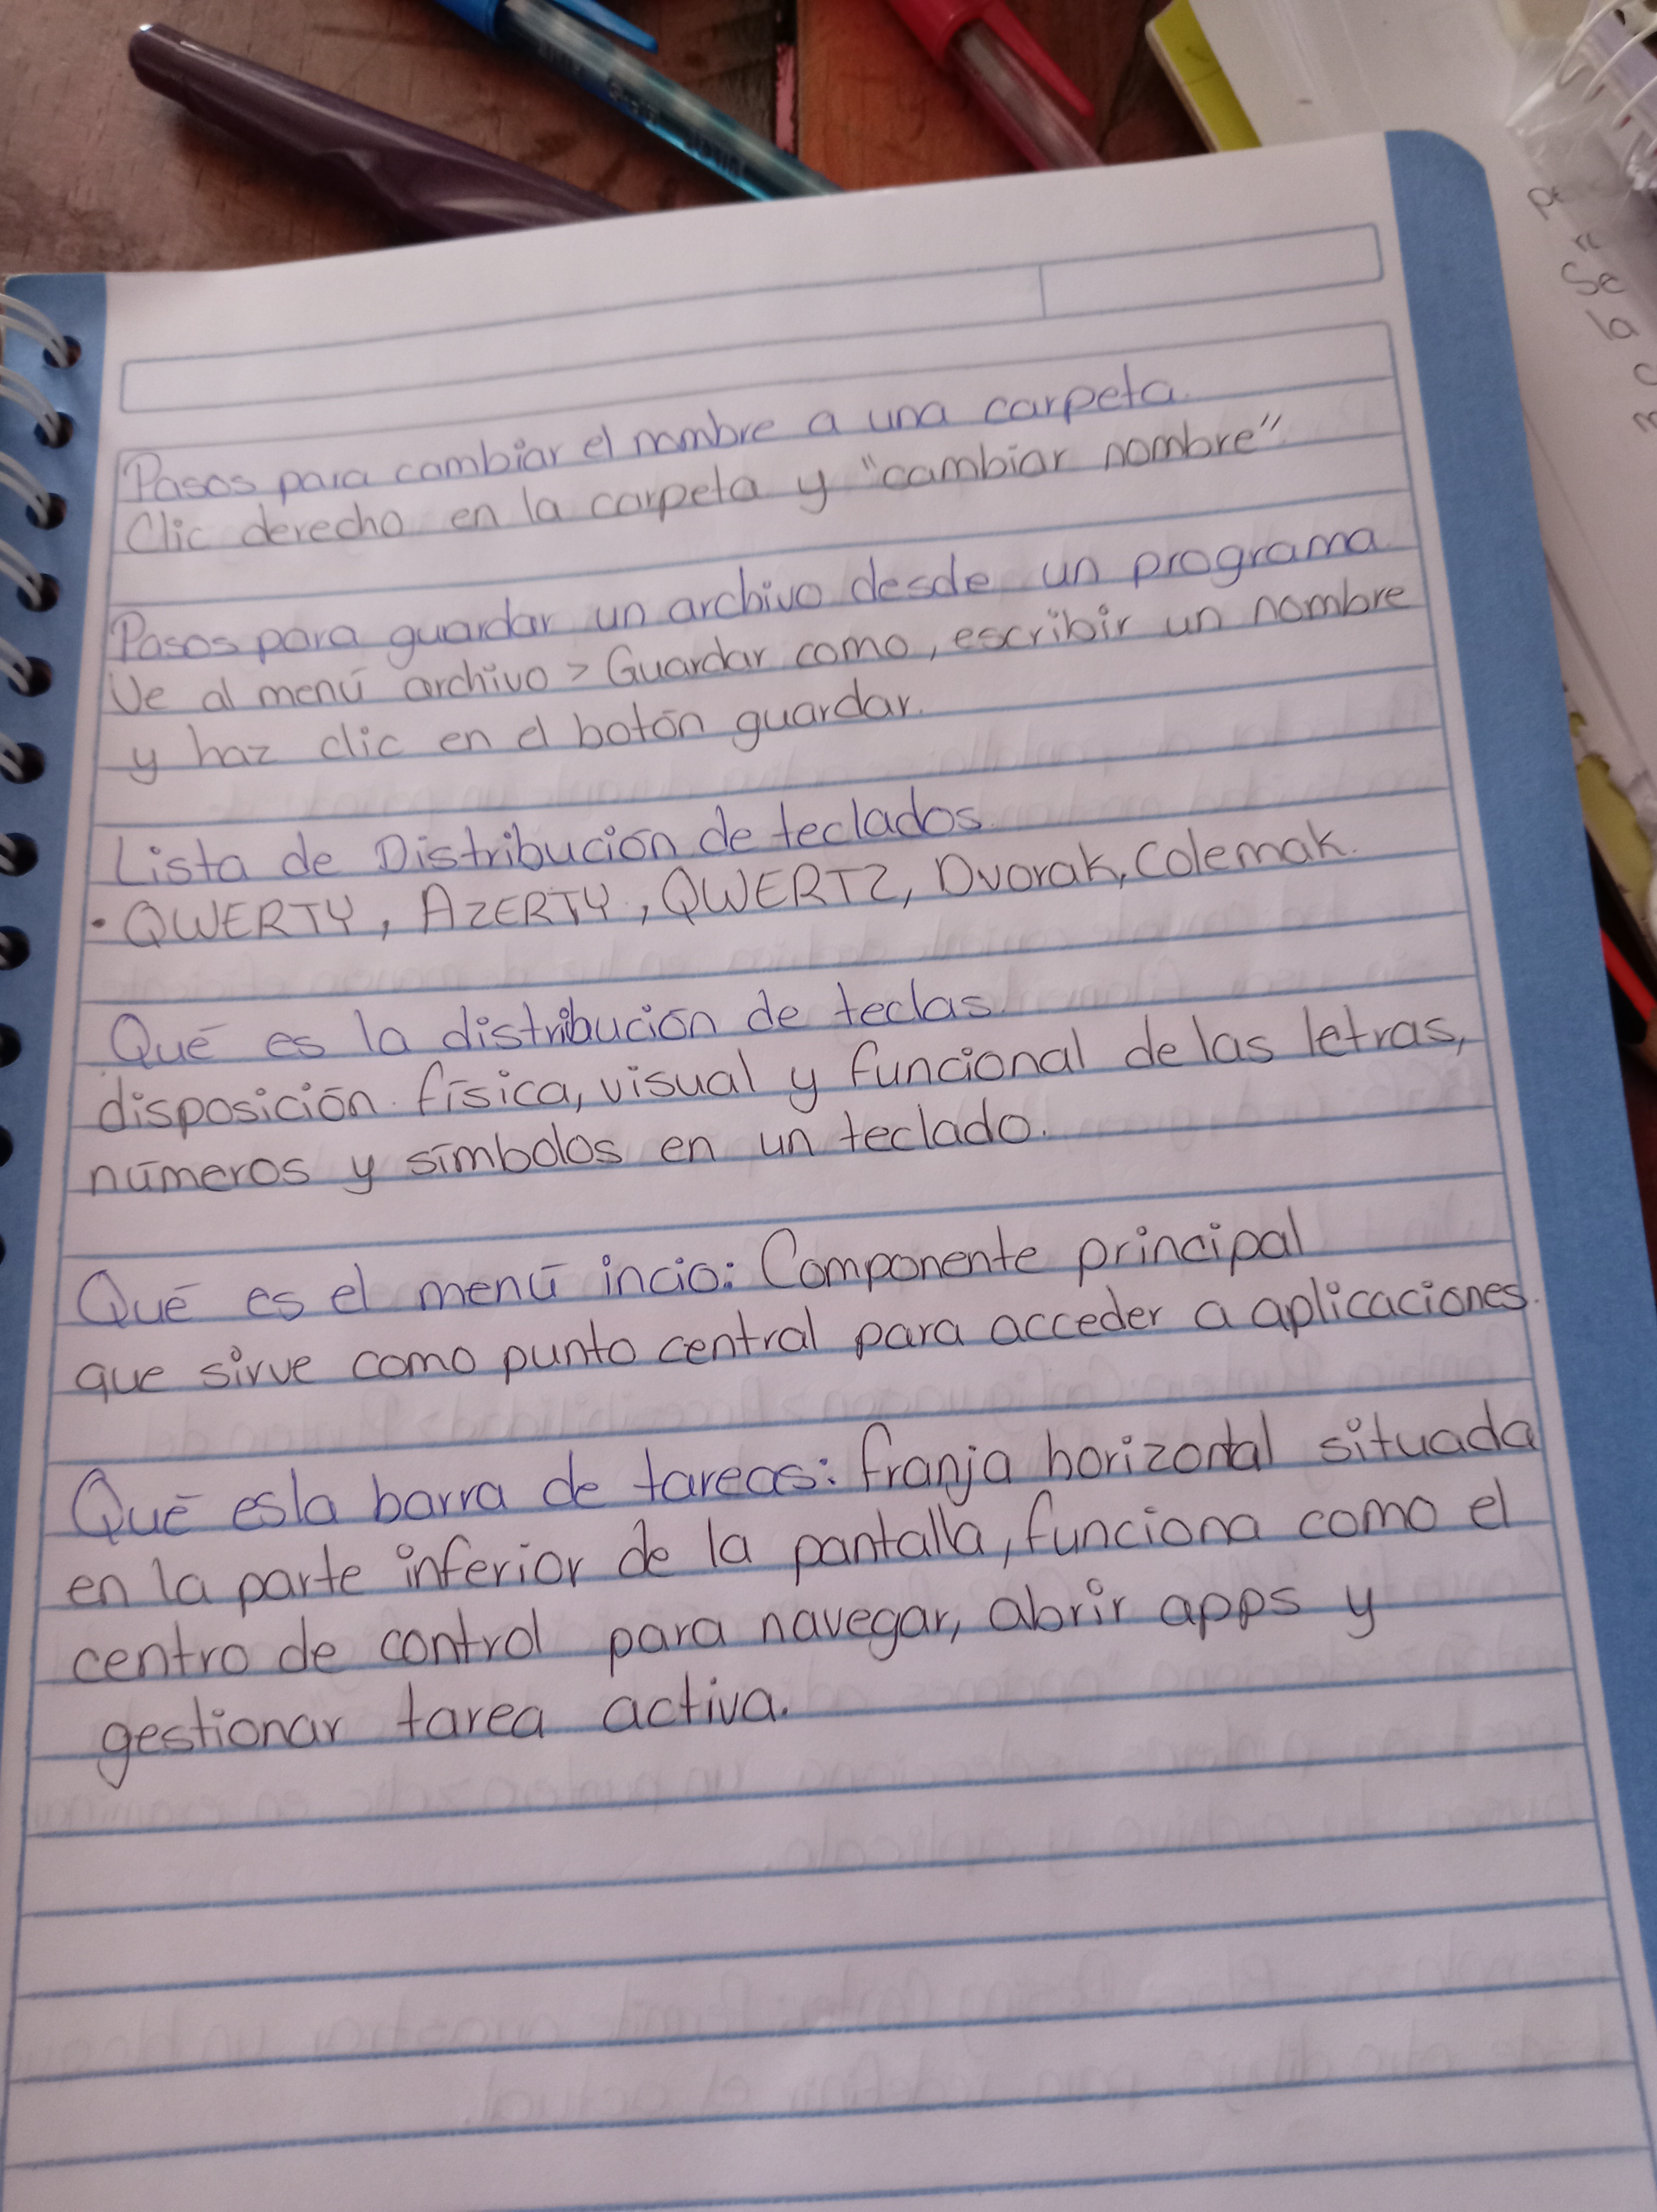 Pasos para cambiar el nombre a una carpeta.
Clic derecho en la carpeta y "cambiar nombre"
Pasos para guardar un archivo desde un programa
Ve al menú archivo > Guardar como, escribir un nombre
y haz clic en el botón guardar.
Lista de Distribución de teclados.
• QWERTY, AZERTY, QWERTZ, Dvorak, Colemak.
Qué es la distribución de teclas.
disposición física, visual y funcional de las letras,
números y símbolos en un teclado.
Qué es el menú incio: Componente principal
que sirve como punto central para acceder a aplicaciones.
Qué es la barra de tareas: franja horizontal situada
en la parte inferior de la pantalla, funciona como el
centro de control para navegar, abrir apps y
gestionar tarea activa.
Se
la